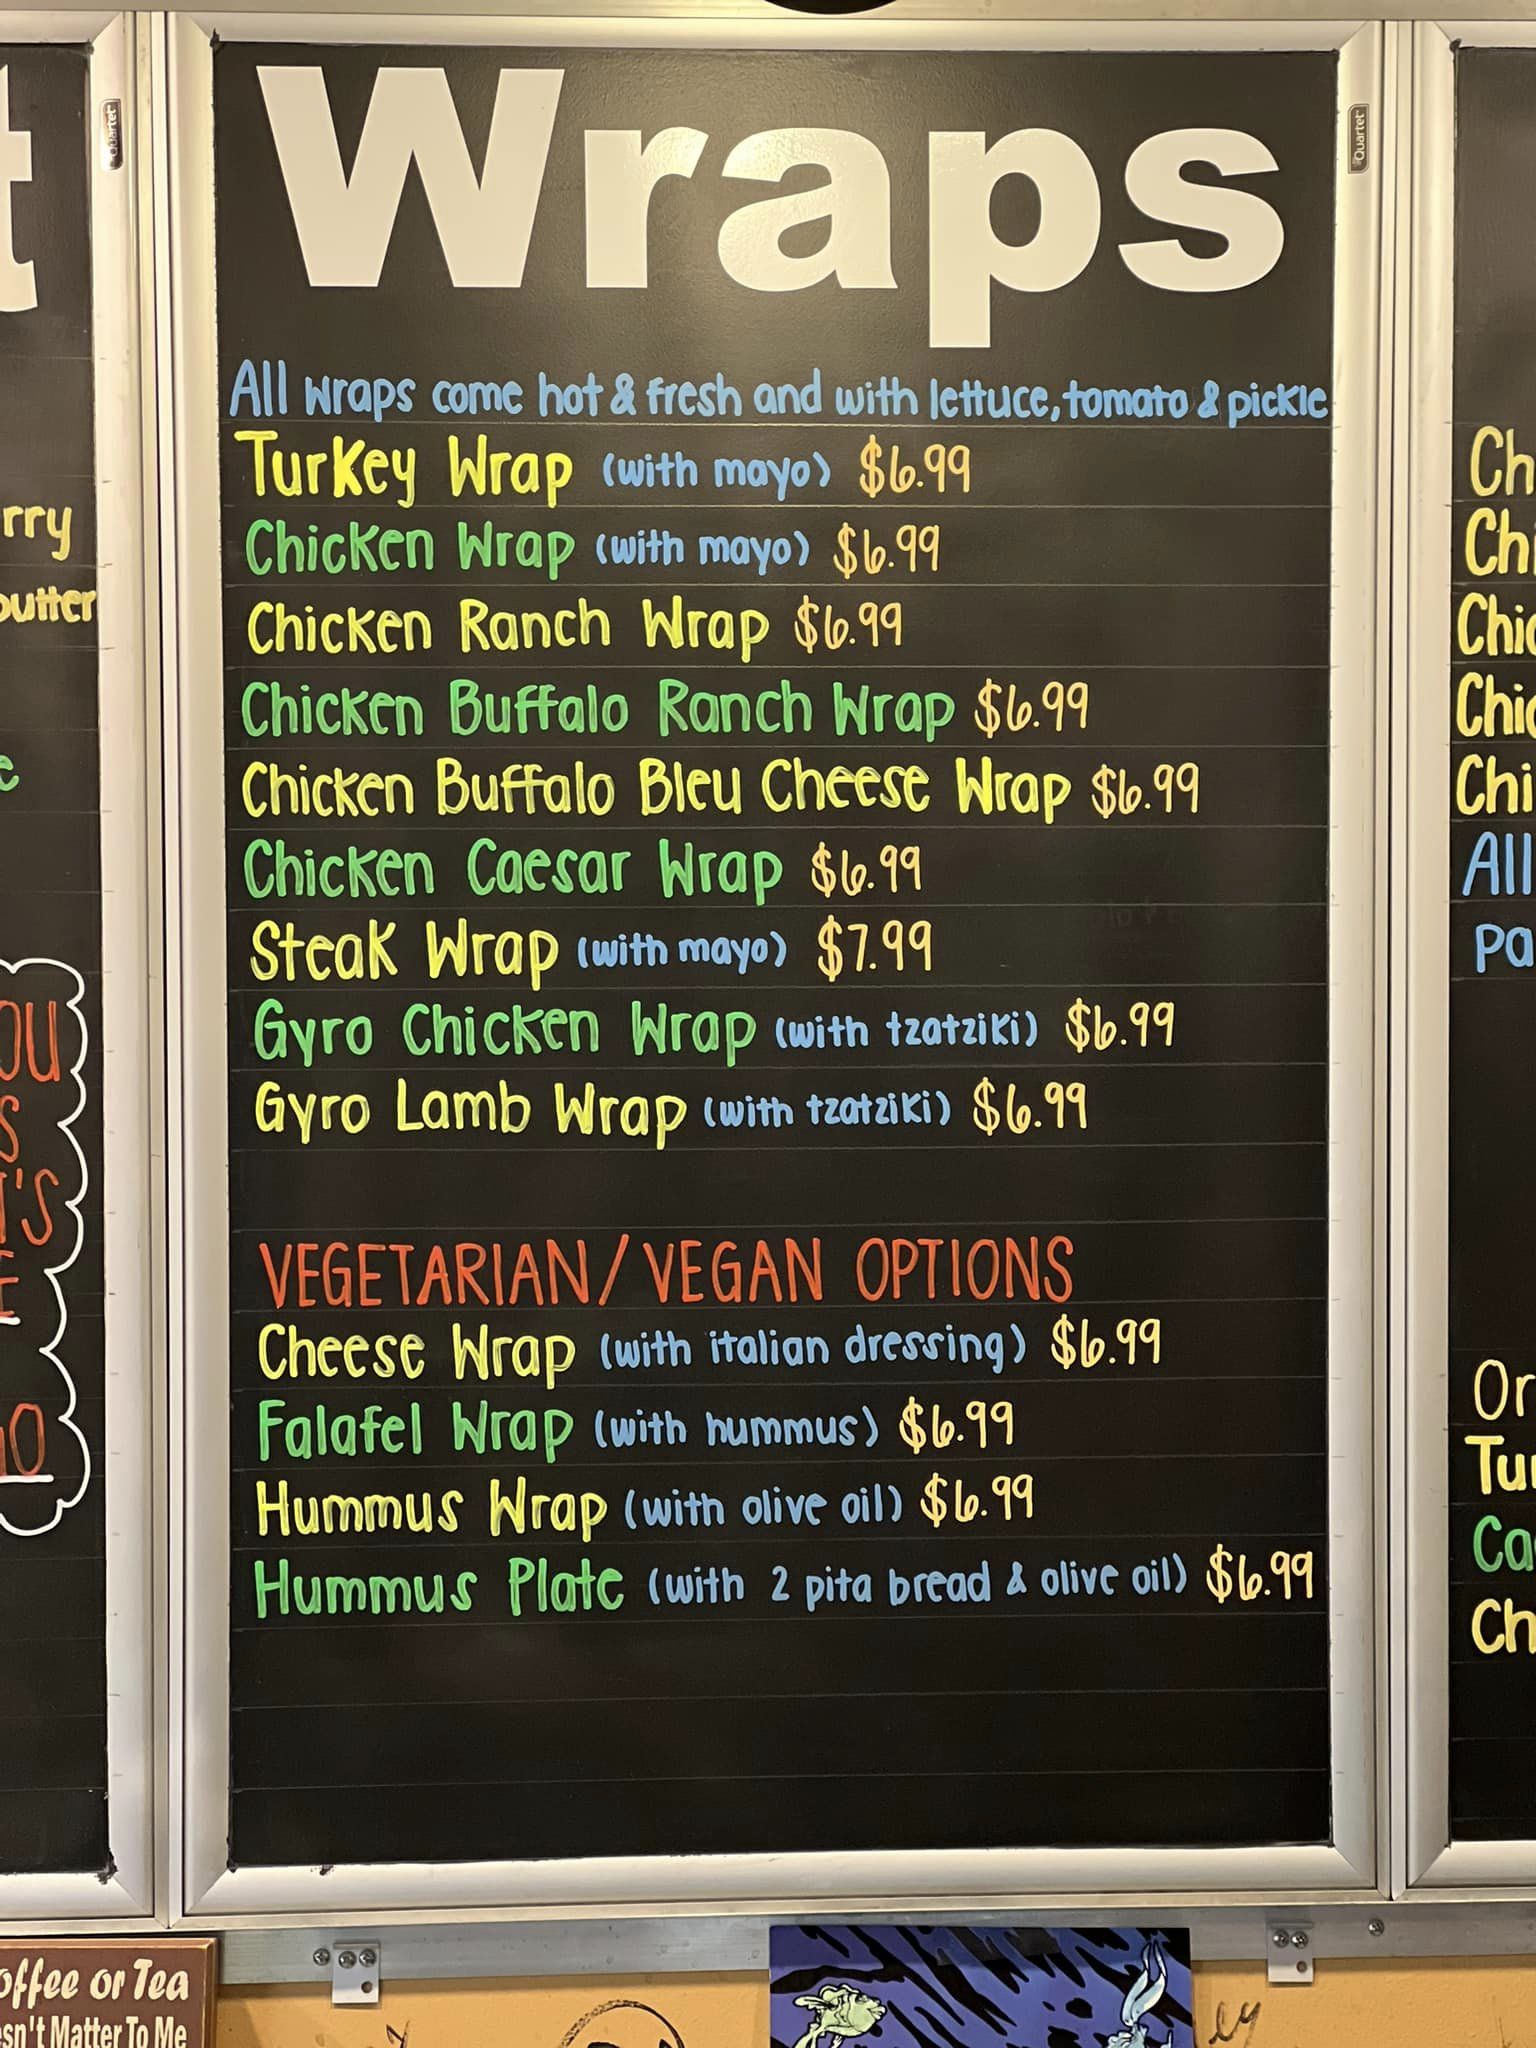 Wraps
All wraps come hot & fresh and with lettuce, tomato & pickle
Turkey Wrap (with mayo) $6.99
Chicken Wrap (with mayo) $6.99
Chicken Ranch Wrap $6.99
Chicken Buffalo Ranch Wrap $6.99
Chicken Buffalo Bleu Cheese Wrap $6.99
Chicken Caesar Wrap $6.99
Steak Wrap (with mayo) $7.99
Gyro Chicken Wrap (with tzatziki) $6.99
Gyro Lamb Wrap (with tzatziki) $6.99
VEGETARIAN/VEGAN OPTIONS
Cheese Wrap (with italian dressing) $6.99
Falafel Wrap (with hummus) $6.99
Hummus Wrap (with olive oil) $6.99
Hummus Plate (with 2 pita bread & olive oil) $6.99
Quartet
Quartet
t
rry
butter
e
OU
S
'S
All
Pa
Or
Tu
Ca
Ch
offee or Tea
esn't Matter To Me